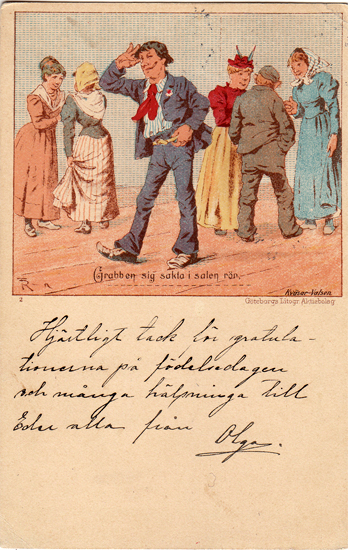 Grabben sig sakta i salen rör.
Kväsar-Valsen
2
Göteborgs Litogr. Aktiebolag
Hjärtligt tack för gratula-
tionerna på födelsedagen
och många hälsninga till
Eder alla från
Olga.